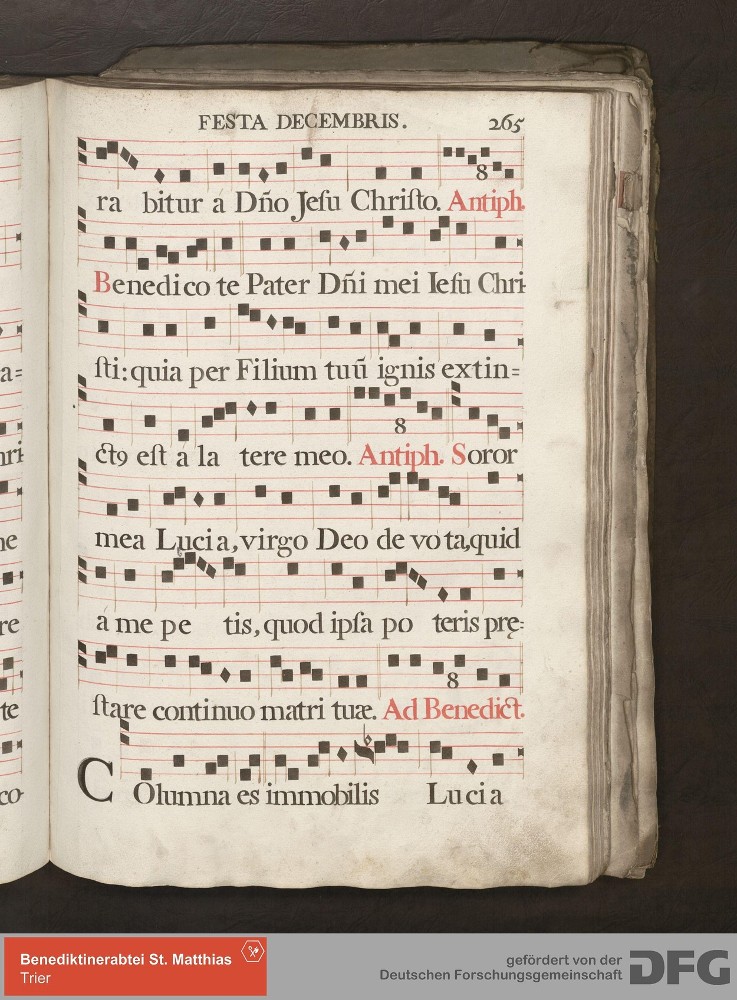 FESTA DECEMBRIS. 265
8
ra bitur a Dño Jesu Christo. Antiph.
Benedico te Pater Dñi mei Iesu Chri
a=
sti: quia per Filium tuū ignis extin=
8
hri
ctꝰ est á la tere meo. Antiph. Soror
ne
mea Lucia, virgo Deo de vo ta, quid
re
a me pe tis, quod ipsa po teris prę=
8
te
stare continuo matri tuæ. Ad Benedict.
co-
COlumna es immobilis Lu ci a
Benediktinerabtei St. Matthias
Trier
gefördert von der
Deutschen Forschungsgemeinschaft
DFG